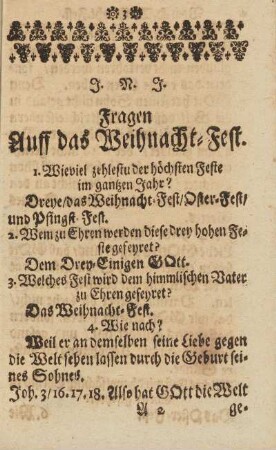 3
J. N. J.
Fragen
Auff das Weihnacht-Fest.
1. Wieviel zehlestu der höchsten Feste
im gantzen Jahr?
Dreye/das Weihnacht-Fest/Oster-Fest/
und Pfingst-Fest.
2. Wem zu Ehren werden diese drey hohen Fe-
ste gefeyret?
Dem Drey-Einigen GOtt.
3. Welches Fest wird dem himmlischen Vater
zu Ehren gefeyret?
Das Weihnacht-Fest.
4. Wie nach?
Weil er an demselben seine Liebe gegen
die Welt sehen lassen durch die Geburt sei-
nes Sohnes.
Joh. 3/16. 17. 18. Also hat GOtt die Welt
A 2 ge-